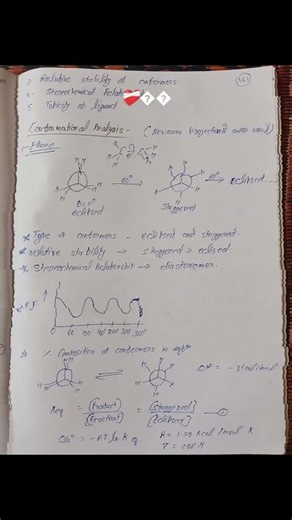 3. Relative stability of conformers -
4. Stereochemical Relation
5. Toticity of ligand
Conformational Analysis - (Newman Projections are used)
1- Ethane
H H H H
60°
60° → eclipsed...
θ = 0°
eclipsed
Staggered
* Type of conformers - eclipsed and staggered -
* Relative stability → staggered > eclipsed -
* Stereochemical Relationship → diastereomer -
P.E. ↑
60 120 180 240 300 360°
* % Composition of conformers in eqbm
ΔH° = -3 kcal/mol
Keq = [Product] / [Reactant] = [staggered] / [Eclipsed] — ①
ΔG° = -RT ln K eq.
T = 298 K